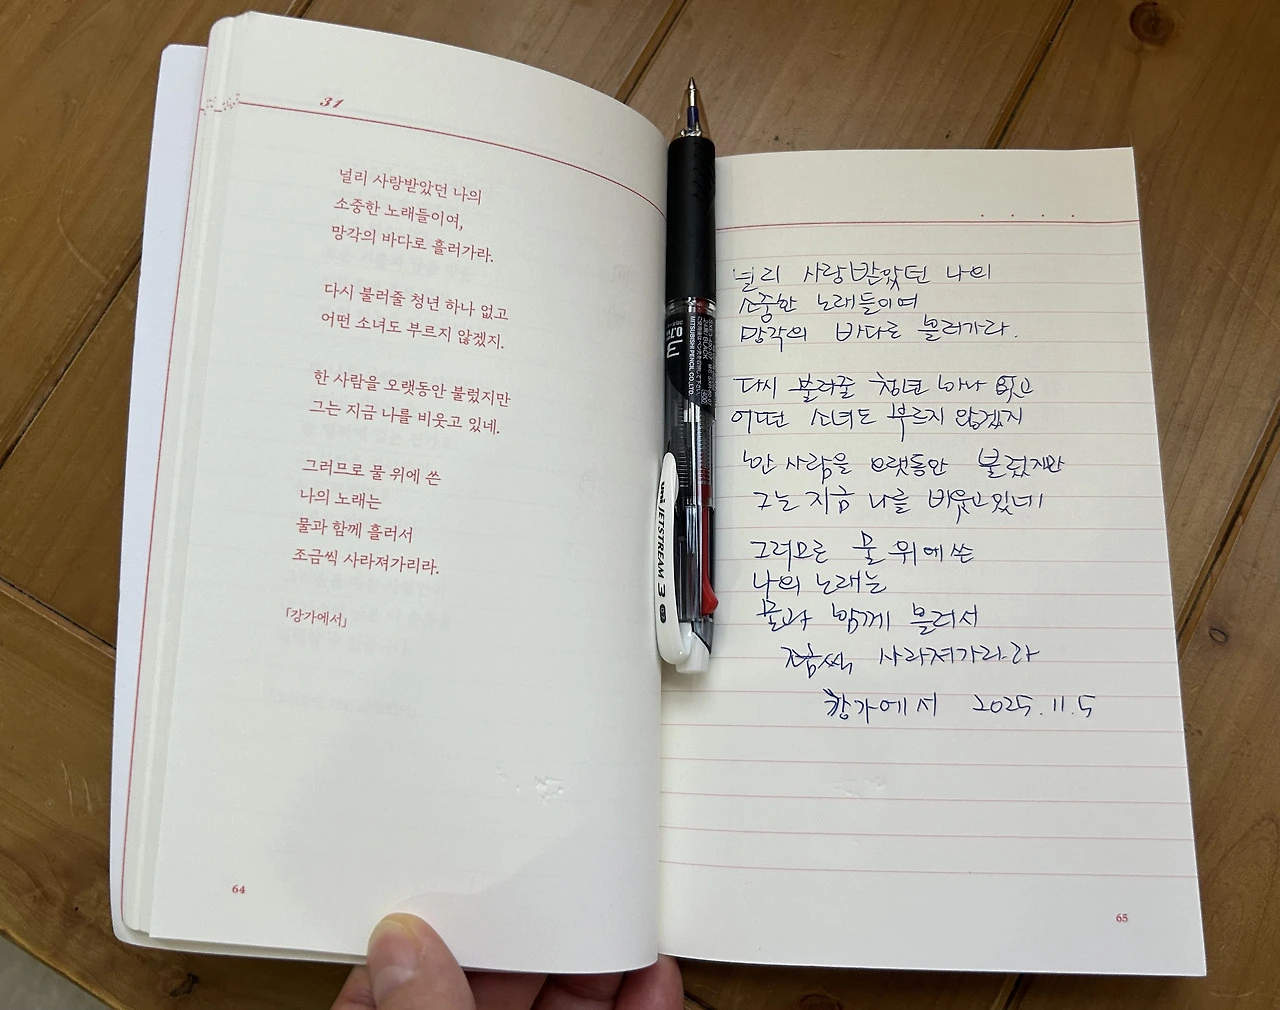 31
널리 사랑받았던 나의
소중한 노래들이여,
망각의 바다로 흘러가라.
다시 불러줄 청년 하나 없고
어떤 소녀도 부르지 않겠지.
한 사람을 오랫동안 불렀지만
그는 지금 나를 비웃고 있네.
그러므로 물 위에 쓴
나의 노래는
물과 함께 흘러서
조금씩 사라져가리라.
「강가에서」
64
uni JETSTREAM 3
MITSUBISHI PENCIL CO., LTD.
널리 사랑받았던 나의
소중한 노래들이여
망각의 바다로 흘러가라.
다시 불러줄 청년 하나 없고
어떤 소녀도 부르지 않겠지
한 사람을 오랫동안 불렀지만
그는 지금 나를 비웃고 있네
그러므로 물 위에 쓴
나의 노래는
물과 함께 흘러서
조금씩 사라져가리라
강가에서 2025.11.5
65